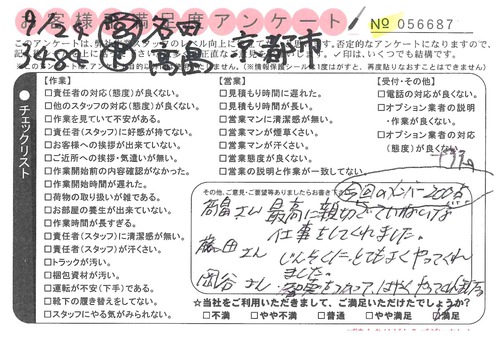 お客様満足度アンケート
№ 056687
9/29 営 谷田
高島 京都市
【作業】
□責任者の対応(態度)が良くない。
□他のスタッフの対応(態度)が良くない。
□作業を見ていて不安がある。
□責任者(スタッフ)に好感が持てない。
□お客様への挨拶が出来ていない。
□ご近所への挨拶・気遣いが無い。
□作業開始前の内容確認がなかった。
□作業開始時間が遅れた。
□荷物の取り扱いが雑である。
□お部屋の養生が出来ていない。
□作業時間が長すぎる。
□責任者(スタッフ)に清潔感が無い。
□責任者(スタッフ)が汗くさい。
□トラックが汚い。
□梱包資材が汚い。
□運転が不安(下手)である。
□靴下の履き替えをしてない。
□スタッフにやる気がみられない。
【営業】
□見積もり時間に遅れた。
□見積もり時間が長い。
□営業マンに清潔感が無い。
□営業マンが煙草くさい。
□営業マンが汗くさい。
□営業態度が良くない。
□営業の説明と作業が一致してない。
【受付・その他】
□電話の対応が良くない。
□オプション業者の説明
・作業が良くない。
□オプション業者の対応
(態度)が良くない。
● チェックリスト
その他、ご意見・ご要望等ありましたらお書き下さい
今回のメンバー 200点
高島さん 最高に親切でていねいな
仕事をしてくれました。
藤田さん じんそくにとてもよくやってくれ
ました。
岡谷さん
★当社をご利用いただきまして、ご満足いただけたでしょうか?
□不満 □やや不満 □普通 □やや満足 □満足